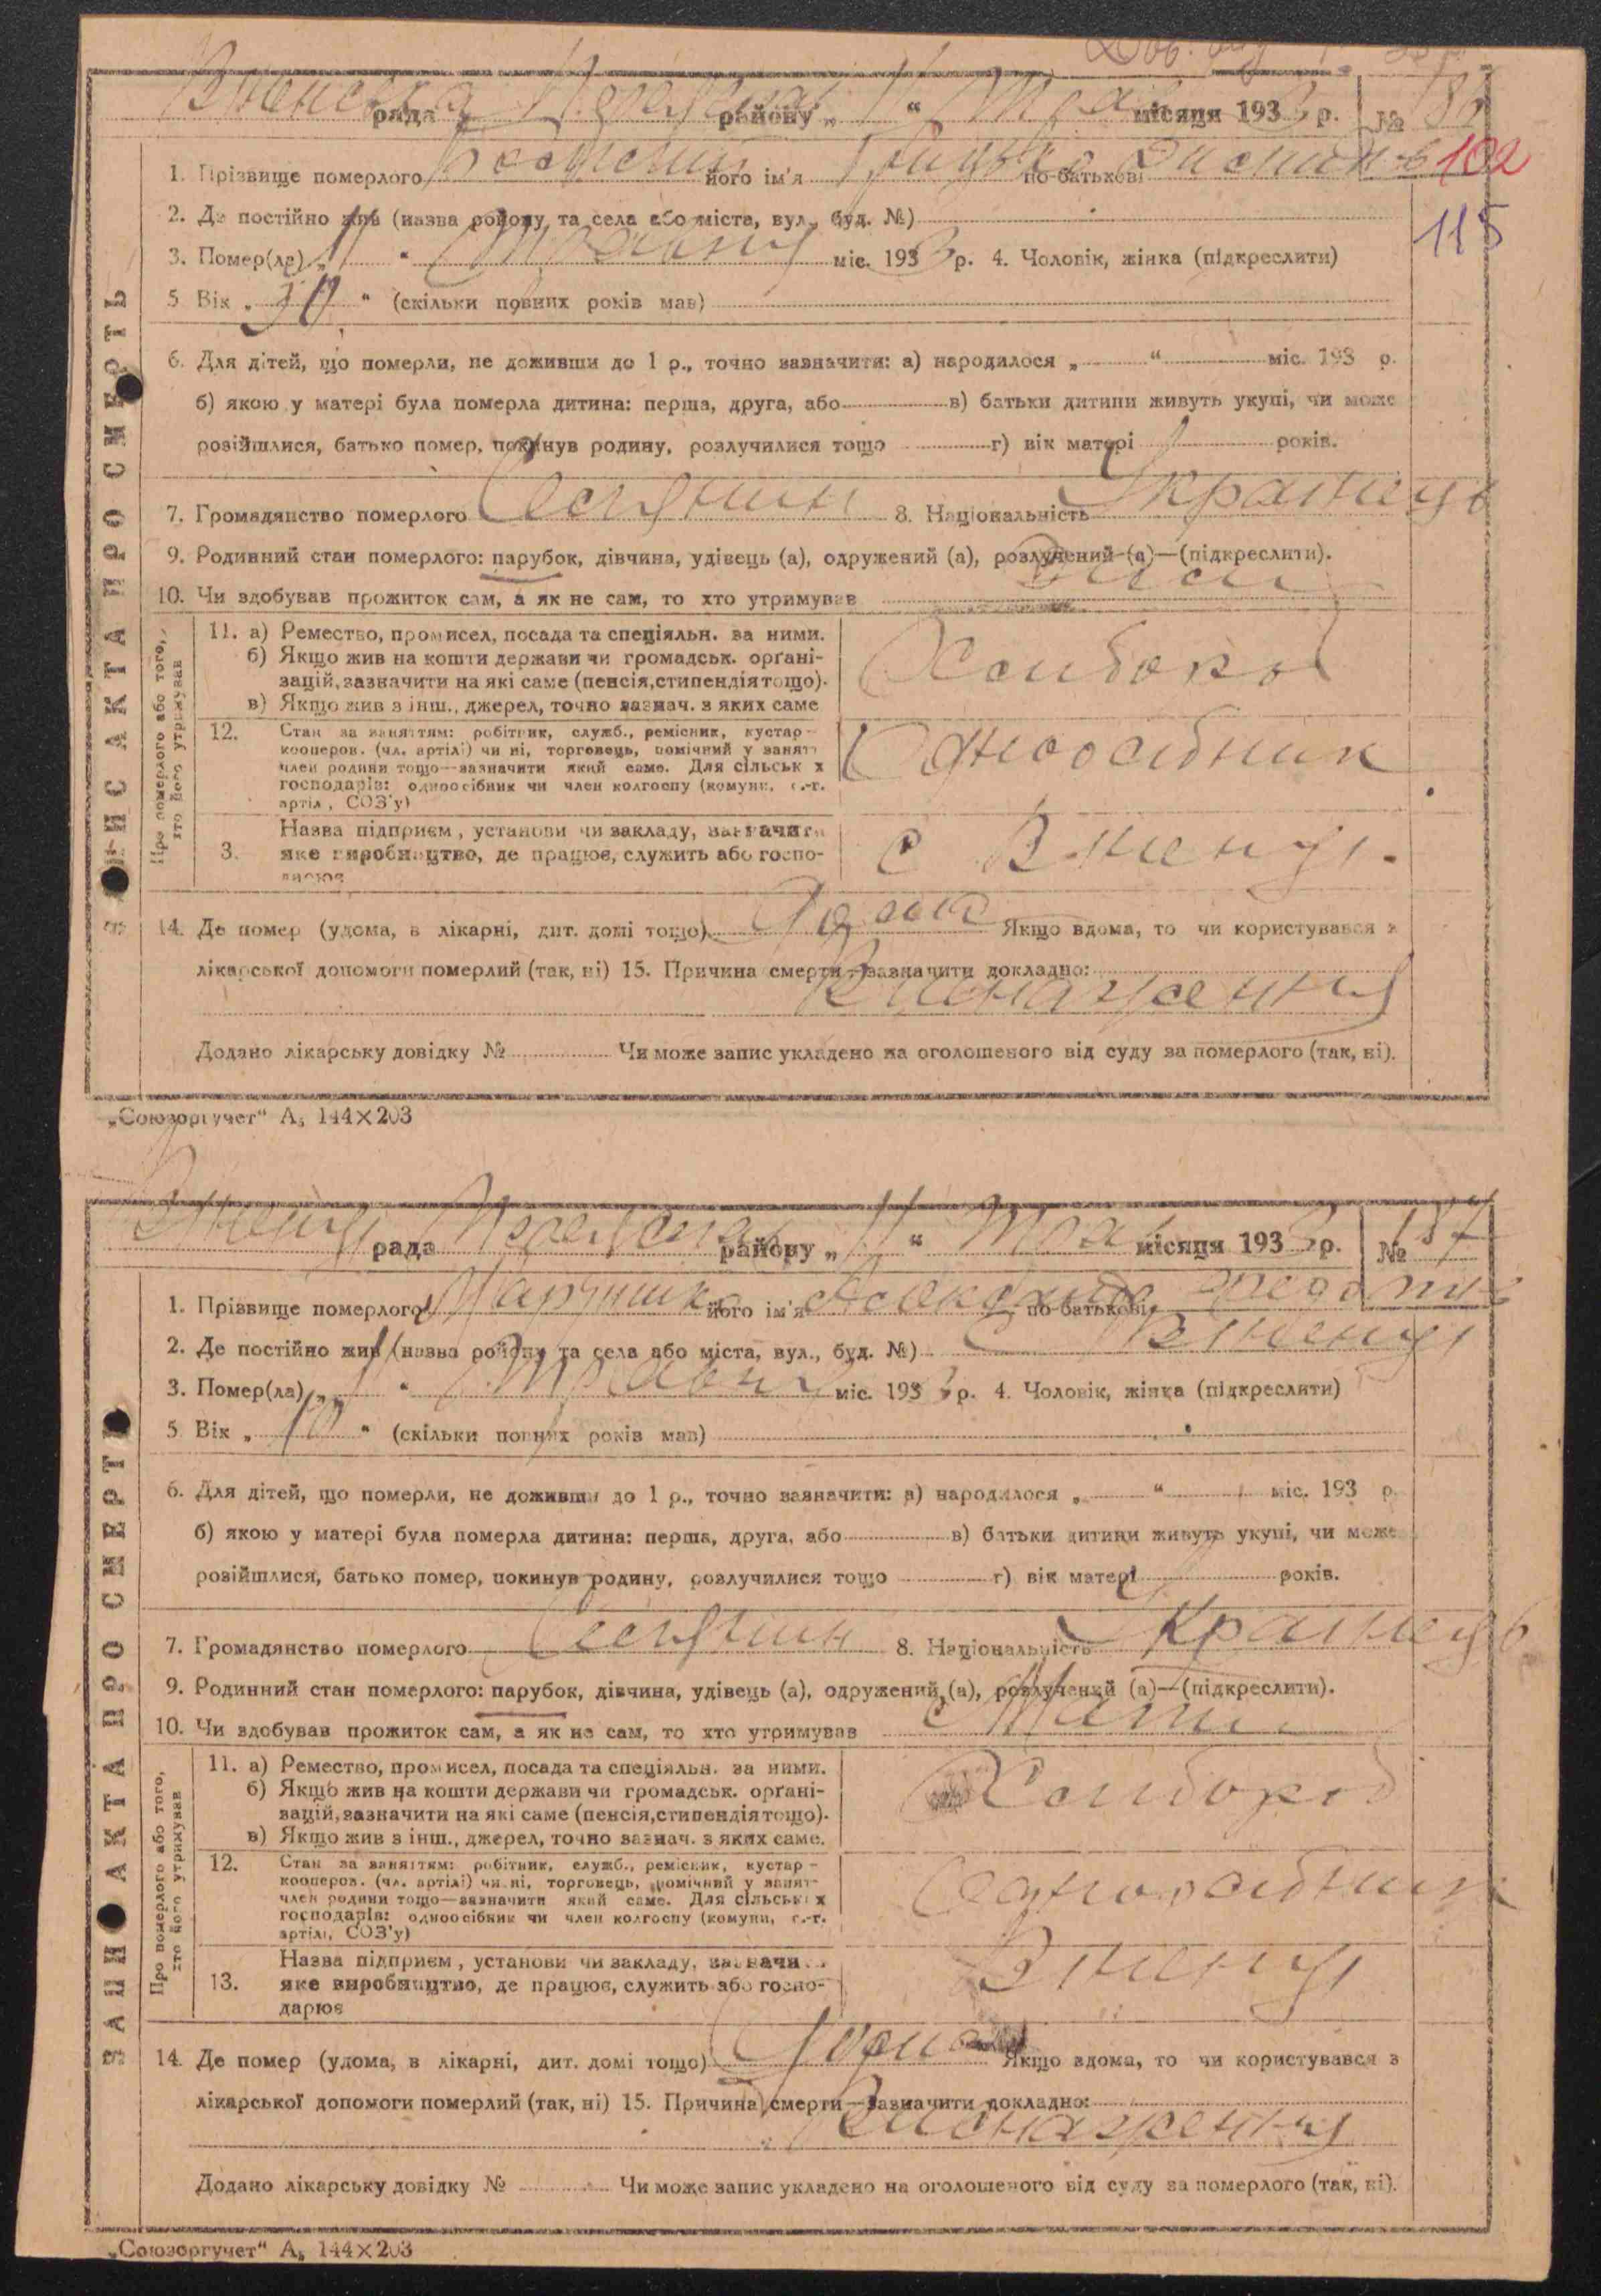 рада району „ 11 “ Трав місяця 193 3 р. № 186
102
1. Прізвище померлого його ім'я по-батькові
115
2. Де постійно жив (назва району та села або міста, вул., буд. №)
3. Помер(ла) „ 11 “ Травня міс. 193 3 р. 4. Чоловік, жінка (підкреслити)
5 Вік „ 30 “ (скільки повних років мав)
6. Для дітей, що померли, не доживши до 1 р., точно зазначити: а) народилося „ “ міс. 193 р.
б) якою у матері була померла дитина: перша, друга, або в) батьки дитини живуть укупі, чи може
розійшлися, батько помер, покинув родину, розлучилися тощо г) вік матері років.
7. Громадянство померлого 8. Національність Украинець
9. Родинний стан померлого: парубок, дівчина, удівець (а), одружений (а), розлучений (а)—(підкреслити).
10. Чи здобував прожиток сам, а як не сам, то хто утримував
ЗАПИС АКТА ПРО СМЕРТЬ
Про померлого або того, хто його утримував
11. а) Ремество, промисел, посада та спеціяльн. за ними. Хлибороб
б) Якщо жив на кошти держави чи громадськ. орґані-
зацій, зазначити на які саме (пенсія, стипендія тощо).
в) Якщо жив з інш., джерел, точно зазнач. з яких саме
12. Стан за заняттям: робітник, служб., ремісник, кустар — Одноосібник
кооперов. (чл. артілі) чи ні, торговець, помічний у занят
член родини тощо—зазначити який саме. Для сільськ х
господарів: одноосібник чи член колгоспу (комуни, с.-г.
артіл, СОЗ'у)
Назва підприєм, установи чи закладу, зазначити
3. яке виробництво, де працює, служить або госпо-
дарює
14. Де помер (удома, в лікарні, дит. домі тощо) Дома Якщо вдома, то чи користувався з
лікарської допомоги померлий (так, ні) 15. Причина смерти—зазначити докладно:
Виснаження
Додано лікарську довідку № Чи може запис укладено на оголошеного від суду за померлого (так, ні).
„Союзоргучет“ А₅ 144×203
рада району „ 11 “ Трав місяця 193 3 р. № 187
1. Прізвище померлого його ім'я по-батькові
2. Де постійно жив (назва району та села або міста, вул., буд. №)
3. Помер(ла) „ 11 “ Травня міс. 193 3 р. 4. Чоловік, жінка (підкреслити)
5 Вік „ 10 “ (скільки повних років мав)
6. Для дітей, що померли, не доживши до 1 р., точно зазначити: а) народилося „ “ міс. 193 р.
б) якою у матері була померла дитина: перша, друга, або в) батьки дитини живуть укупі, чи може
розійшлися, батько помер, покинув родину, розлучилися тощо г) вік матері років.
7. Громадянство померлого 8. Національність Украинець
9. Родинний стан померлого: парубок, дівчина, удівець (а), одружений (а), розлучений (а)—(підкреслити).
10. Чи здобував прожиток сам, а як не сам, то хто утримував Мати
ЗАПИС АКТА ПРО СМЕРТЬ
Про померлого або того, хто його утримував
11. а) Ремество, промисел, посада та спеціяльн. за ними. Хлибороб
б) Якщо жив на кошти держави чи громадськ. орґані-
зацій, зазначити на які саме (пенсія, стипендія тощо).
в) Якщо жив з інш., джерел, точно зазнач. з яких саме.
12. Стан за заняттям: робітник, служб., ремісник, кустар — Одноосібник
кооперов. (чл. артілі) чи ні, торговець, помічний у занят-
член родини тощо—зазначити який саме. Для сільськ х
господарів: одноосібник чи член колгоспу (комуни, с.-г.
артілі, СОЗ'у)
Назва підприєм, установи чи закладу, зазначи
13. яке виробництво, де працює, служить або госпо-
дарює
14. Де помер (удома, в лікарні, дит. домі тощо) Дома Якщо вдома, то чи користувався з
лікарської допомоги померлий (так, ні) 15. Причина смерти—зазначити докладно:
Виснаження
Додано лікарську довідку № Чи може запис укладено на оголошеного від суду за померлого (так, ні).
„Союзоргучет“ А₅ 144×203